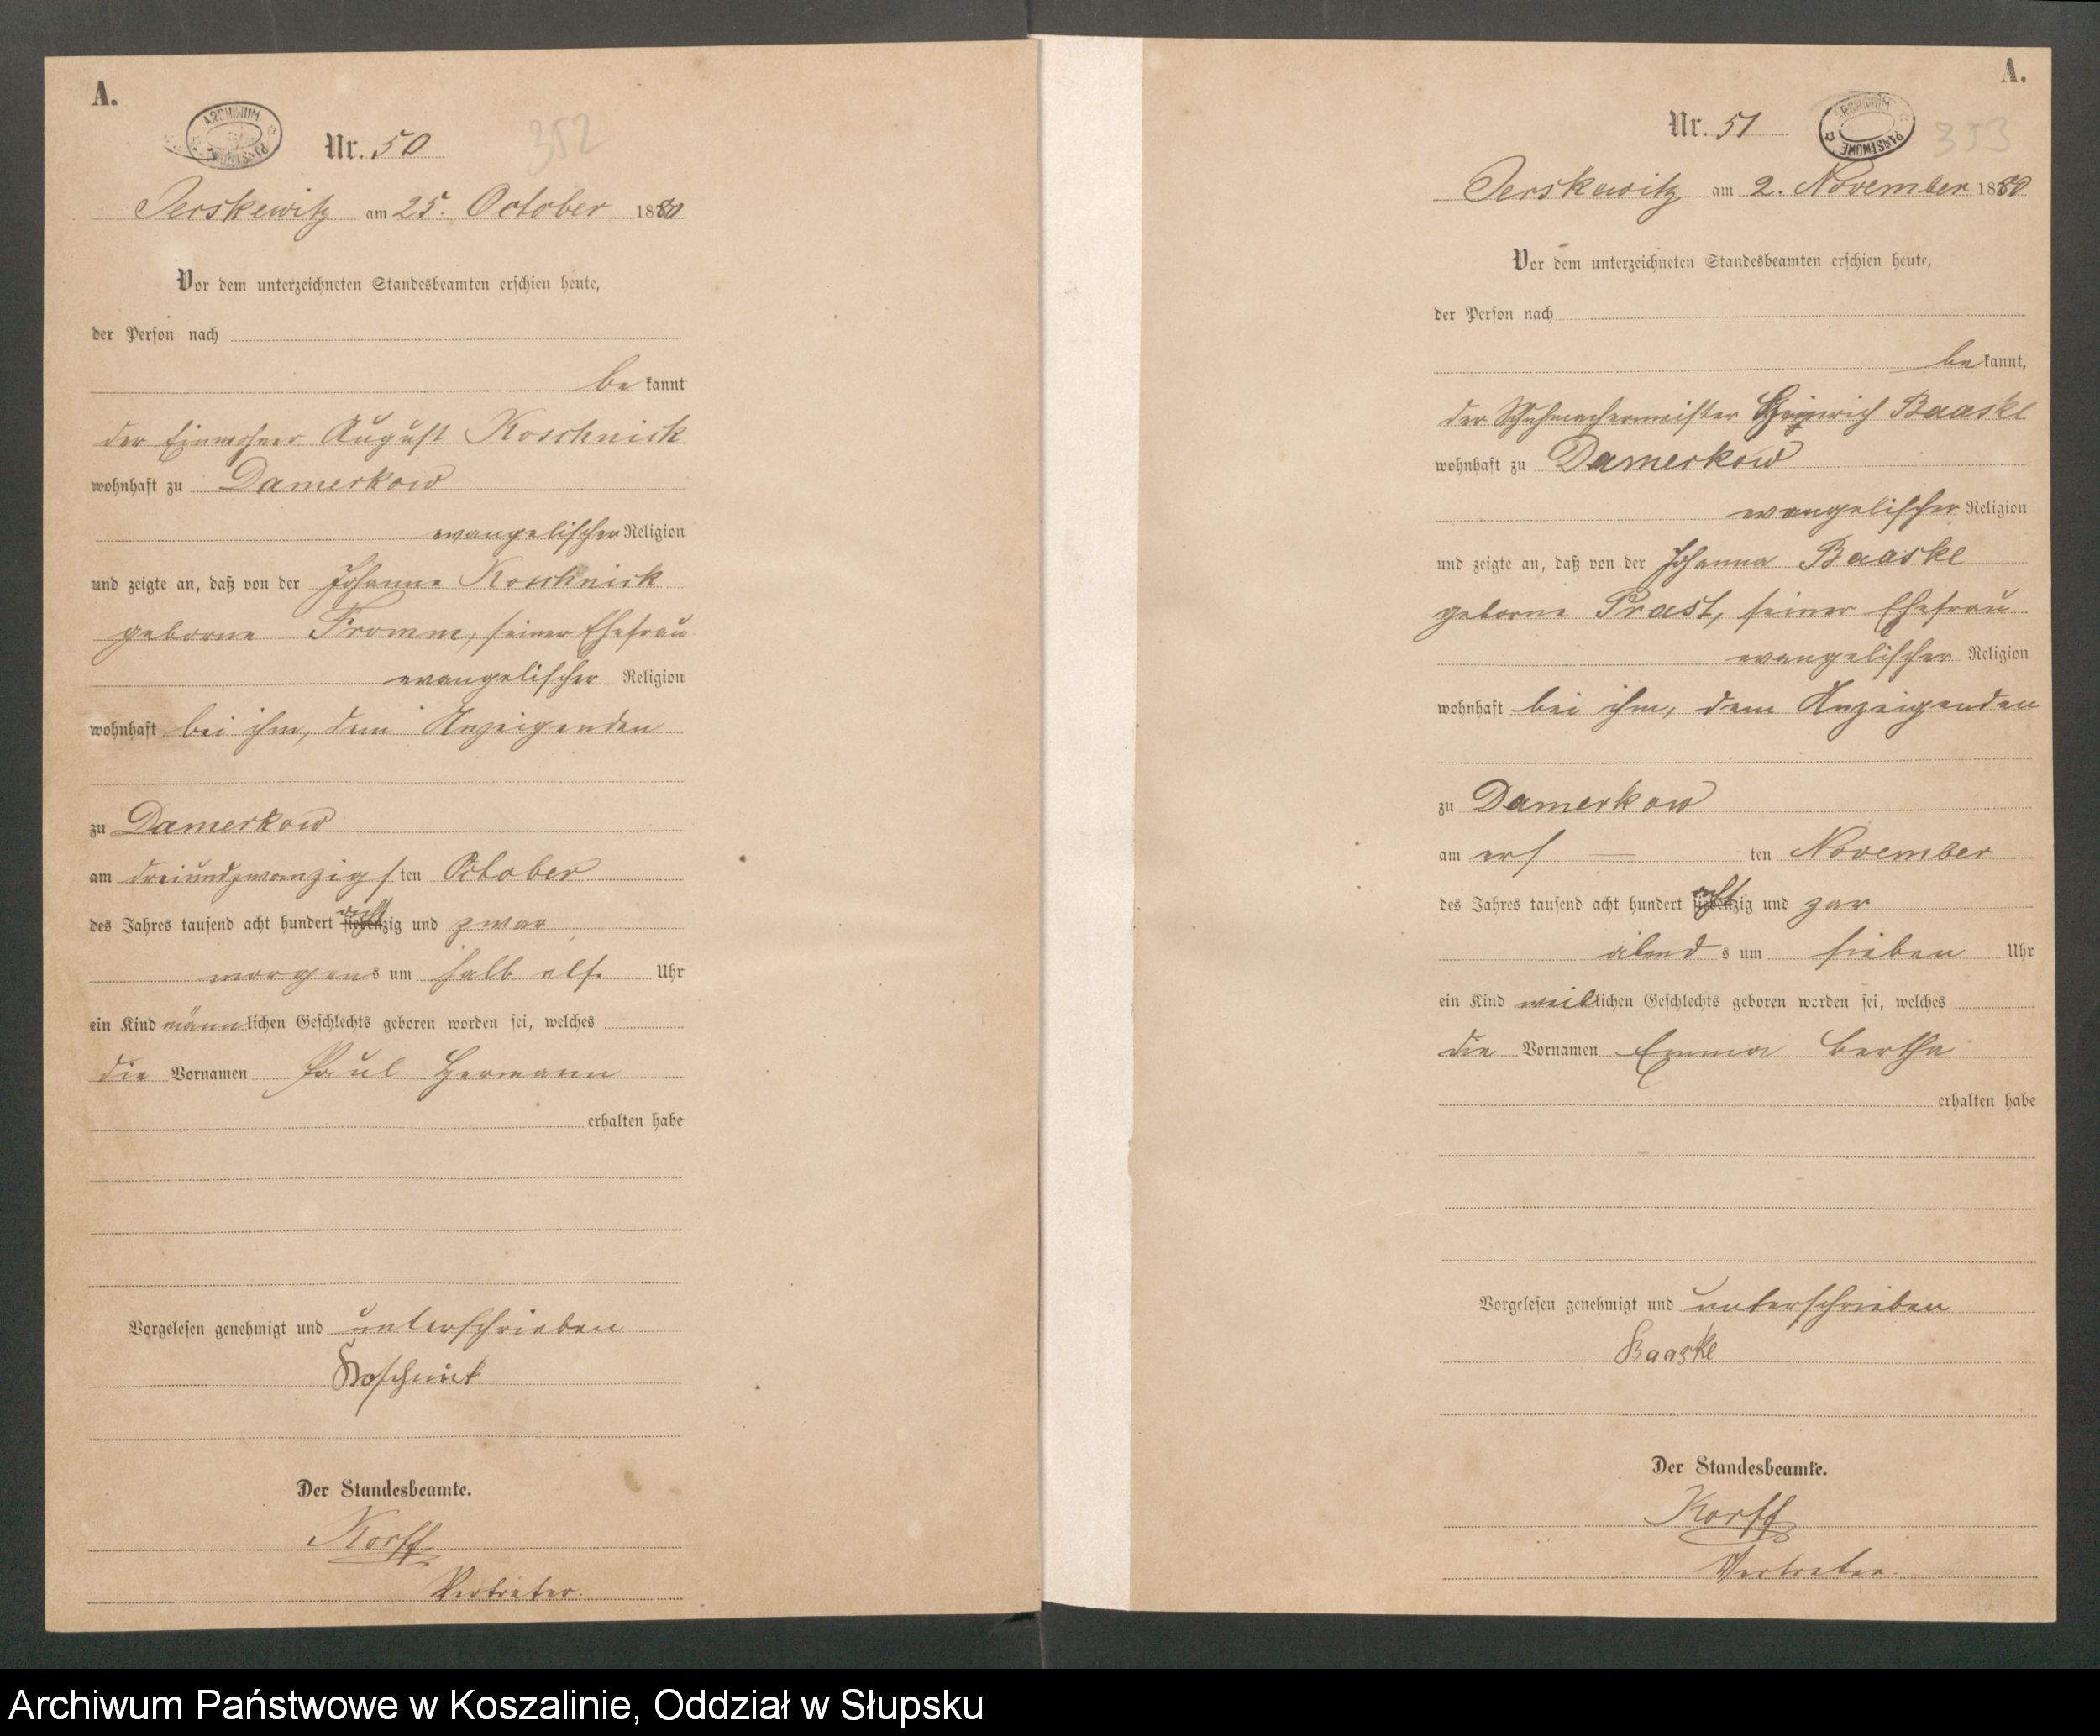 A.
ARCHIWUM PAŃSTWOWE
Nr. 50
352
Jerskewitz am 25. October 1880
Vor dem unterzeichneten Standesbeamten erschien heute,
der Person nach
be kannt
der Einwohner August Koschnick
wohnhaft zu Damerkow
evangelischer Religion
und zeigte an, daß von der Johanne Koschnick
geborne Fromm, seiner Ehefrau
evangelischer Religion
wohnhaft bei ihm, dem Anzeigenden
zu Damerkow
am dreiundzwanzigsten October
des Jahres tausend acht hundert siebenzig acht und zwar
morgens um halb elf Uhr
ein Kind männlichen Geschlechts geboren worden sei, welches
die Vornamen Paul Hermann
erhalten habe
Vorgelesen genehmigt und unterschrieben
Koschnick
Der Standesbeamte.
Korff
Vertreter.
A.
Nr. 51
ARCHIWUM PAŃSTWOWE
353
Jerskewitz am 2. November 1880
Vor dem unterzeichneten Standesbeamten erschien heute,
der Person nach
be kannt,
der Schuhmachermeister Heinrich Baaske
wohnhaft zu Damerkow
evangelischer Religion
und zeigte an, daß von der Johanna Baaske
geborne Prast, seiner Ehefrau
evangelischer Religion
wohnhaft bei ihm, dem Anzeigenden
zu Damerkow
am ers — ten November
des Jahres tausend acht hundert siebenzig acht und zwar
abends um sieben Uhr
ein Kind weiblichen Geschlechts geboren worden sei, welches
die Vornamen Emma Bertha
erhalten habe
Vorgelesen genehmigt und unterschrieben
Baaske
Der Standesbeamte.
Korff
Vertreter.
Archiwum Państwowe w Koszalinie, Oddział w Słupsku